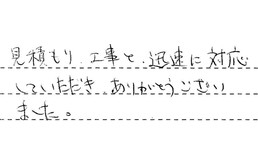 見積もり、工事と、迅速に対応
していただき、ありがとうござい
ました。